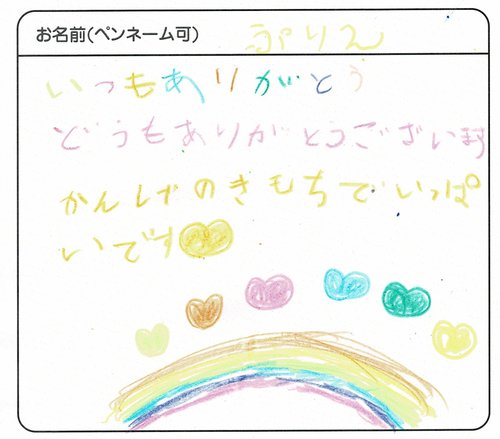 お名前(ペンネーム可) ぷりん
いつもありがとう
どうもありがとうございます
かんしゃのきもちでいっぱ
いです